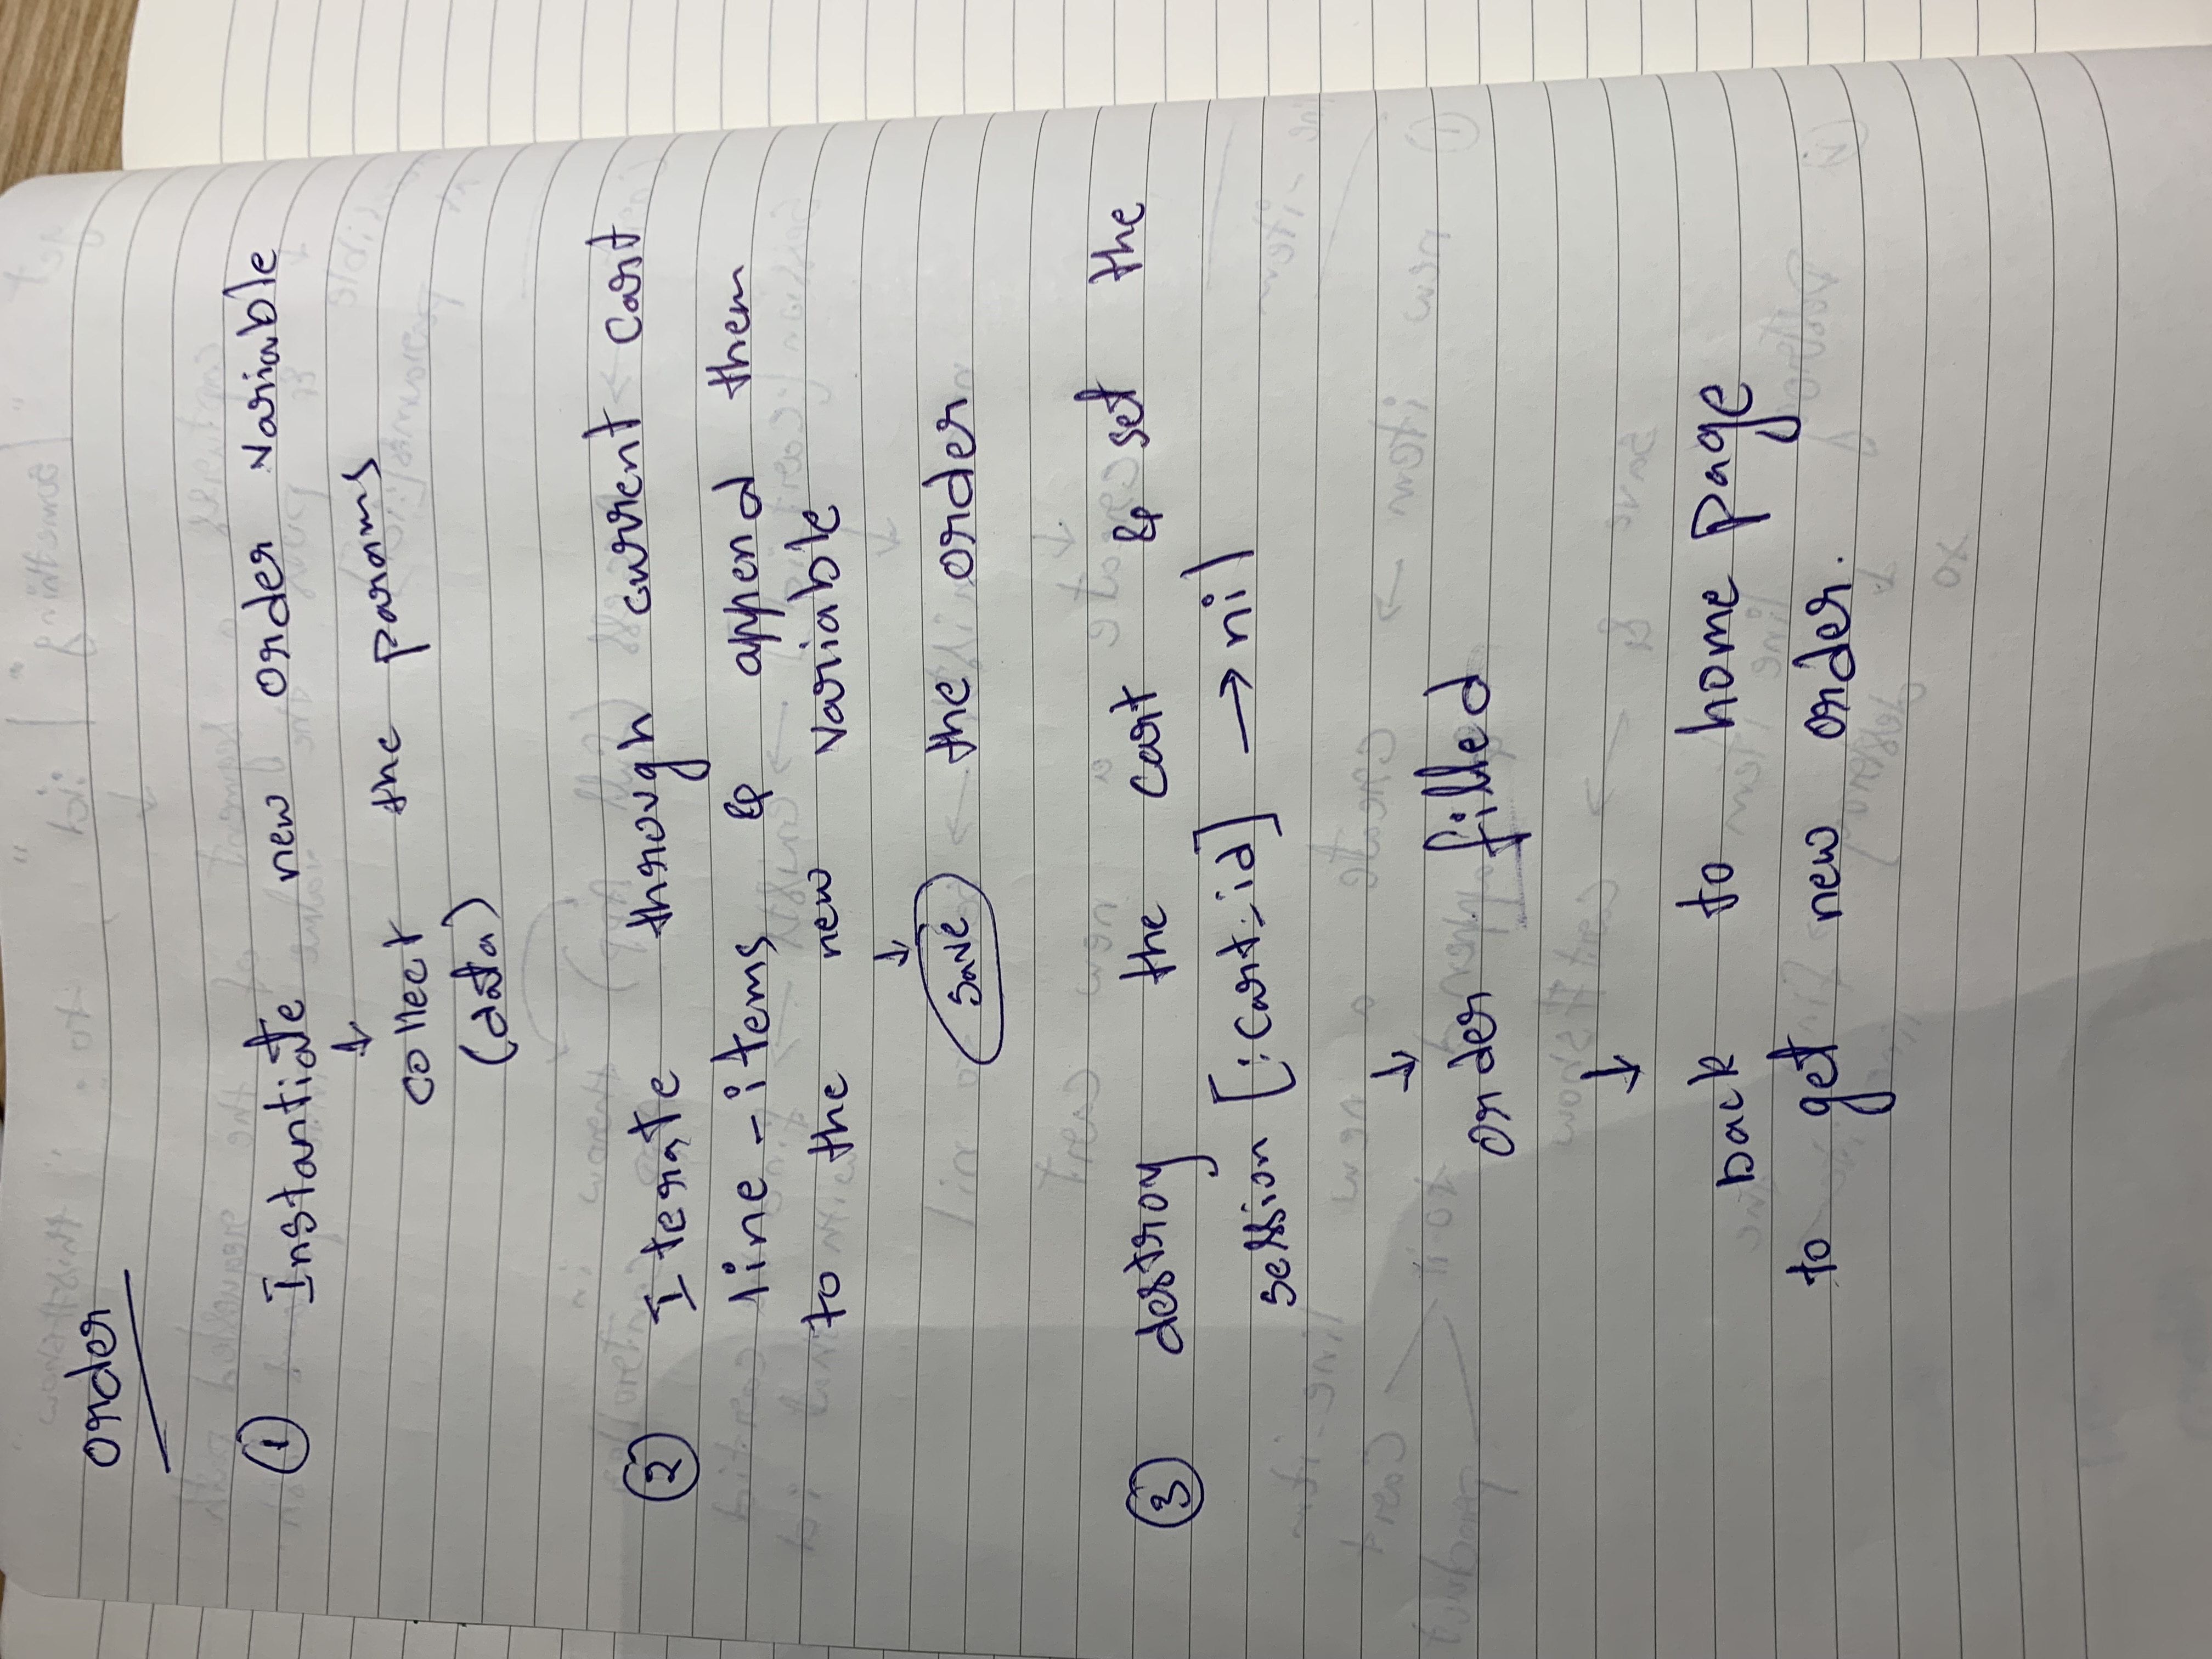 order
① Instantiate new order variable
↓
collect the params
(data)
② Iterate through current cart
line-items & append them
to the new variable
↓
save the order
③ destroy the cart & set the
session [:cart_id] → nil
↓
order filled
↓
back to home page
to get new order.